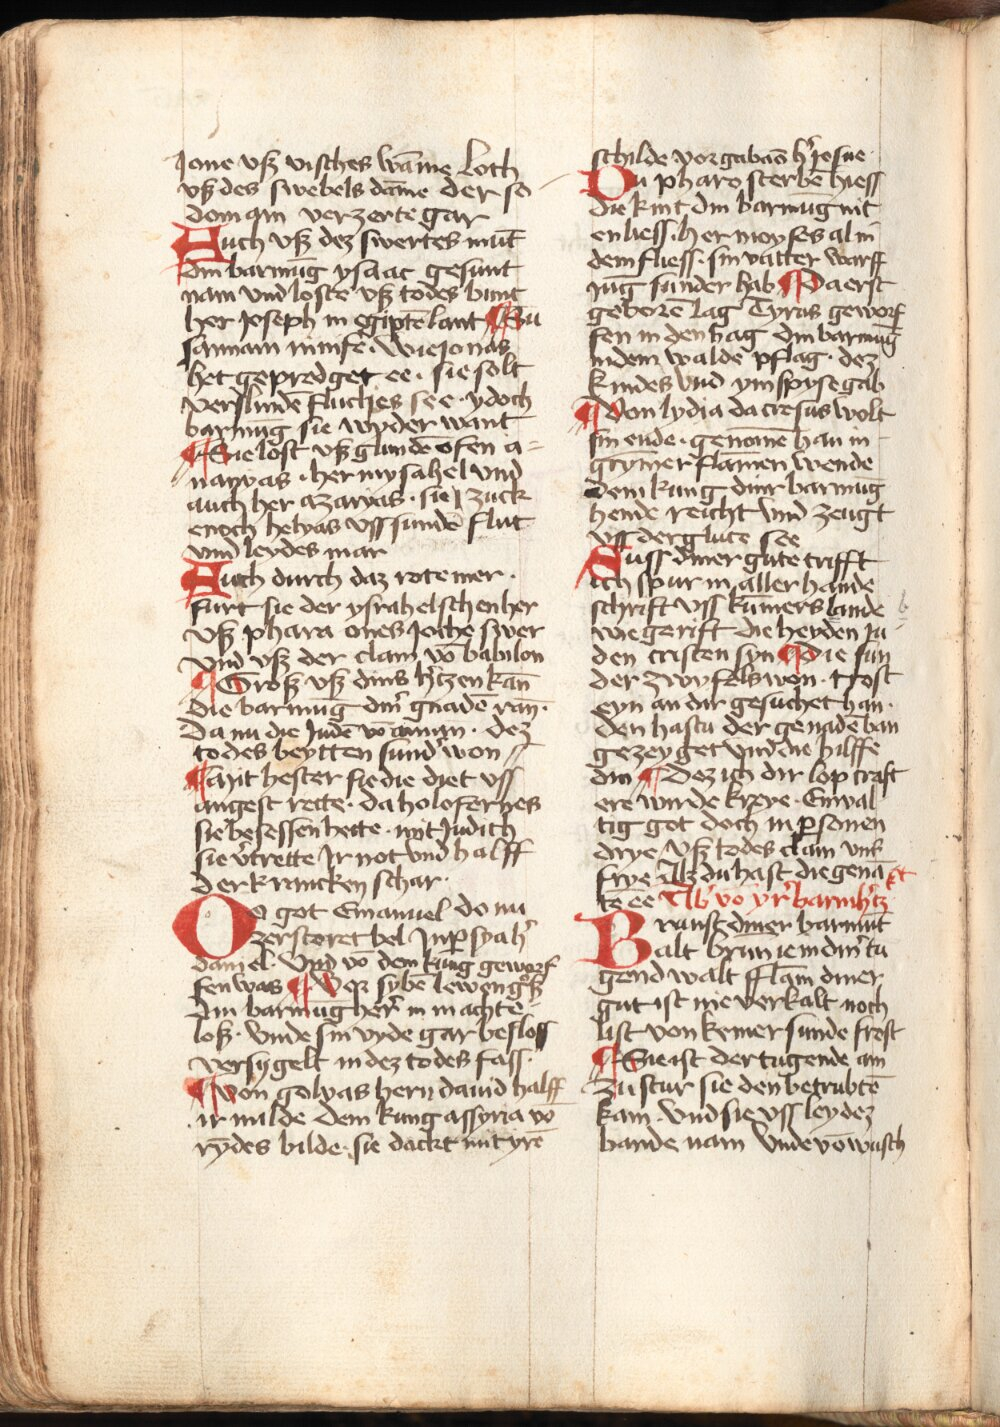 Jone vß visches wāme Loth
vß des swebels dāme der so
dom arn verzerte gar
Auch vß dez swertes mūt
din barmūg ysaac gesunt
nam vnd loste vß todes bunt
her Joseph in egiptē lant ¶ Su
sannam ninife · wie Jonas
het gepredget ee · sie solt
verslindē fluches see · ydoch
barmūg sie wyder want
¶ Sie lost vß glundē ofen a=
nanyas · her mysahel vnd
auch her azaryas · sie zuck
enoch helyas vss sundē flut
vnd leydes mar
Auch durch daz rote mer ·
furt sie der ysrahelschen her
vß phara ones Joche swer
vnd vß der clam vō babilon
¶ Groß vß dins h̓tzen kan̄
die barmūg din̓ gnadē ran̄ ·
Da nu die Judē vō aman · dez
todes beytten sund̓ won
¶ Mit hester sie die diet vss
angest rette · da holofernes
sie besessen hette · mit Judith
sie v̓trette Jr not vnd halff
der krancken schar ·
O got Emanuel do nu
zerstoret bel Jn p̱syah̓
daniel · Vnd vō dem kūng geworf
fen was ¶ Vor sybē lewen groß
din barmūg her̓ in machte
loß · vnde sin vrde gar besloss
versygelt in dez todes fass ·
¶ Von golyas hern dauid halff
ir milde dem kung assyria vō
rydes bilde · sie dackt mit yrē
schilde vor gabaō h̓ Josue ·
Du pharo sterbē hiess
die kint din barmūg nit
enliess · her moyses al in
dem fliess · sin vatter warff
jūg sunder hab ¶ Da erst
geborē lag Tyrus geworf
fen in den hag din barmūg
in dem walde pflag · dez
kindes vnd ym spyse gab
¶ Von lydia da cresus wolt
sin ende · genomē han in
grymer flamen wende
dem kung diner barmūg
hende reicht vnd zeugt
vss der glute see
Auss diner gute trifft
ich spur in aller hande
schrift vss kumers lande
wie gerift die heyden Ju
den cristen syn ¶ Die sun
der zwyfels won · trost
eyn an dir gesuchet han ·
den hastu der genadē ban
gezeyget vnd die hilffe
din ¶ Dez ich dir lop craft
ere wirde krye · Einval
tig got doch in p̱sonen
drye vß todes clam vns
frye Als du hast die genā
te ee Ab̓ vō yr̓ barmh̓tzkt
Branst diner barmūt
alt brūn ie in din̓ tu
gend walt fflam diner
gut ist nie verkalt noch
list von keiner sunde frost
¶ Sie ist der tugende am
zu stur sie den betrubtē
kam · vnd sie vss leydez
bande nam vnde vō wasch